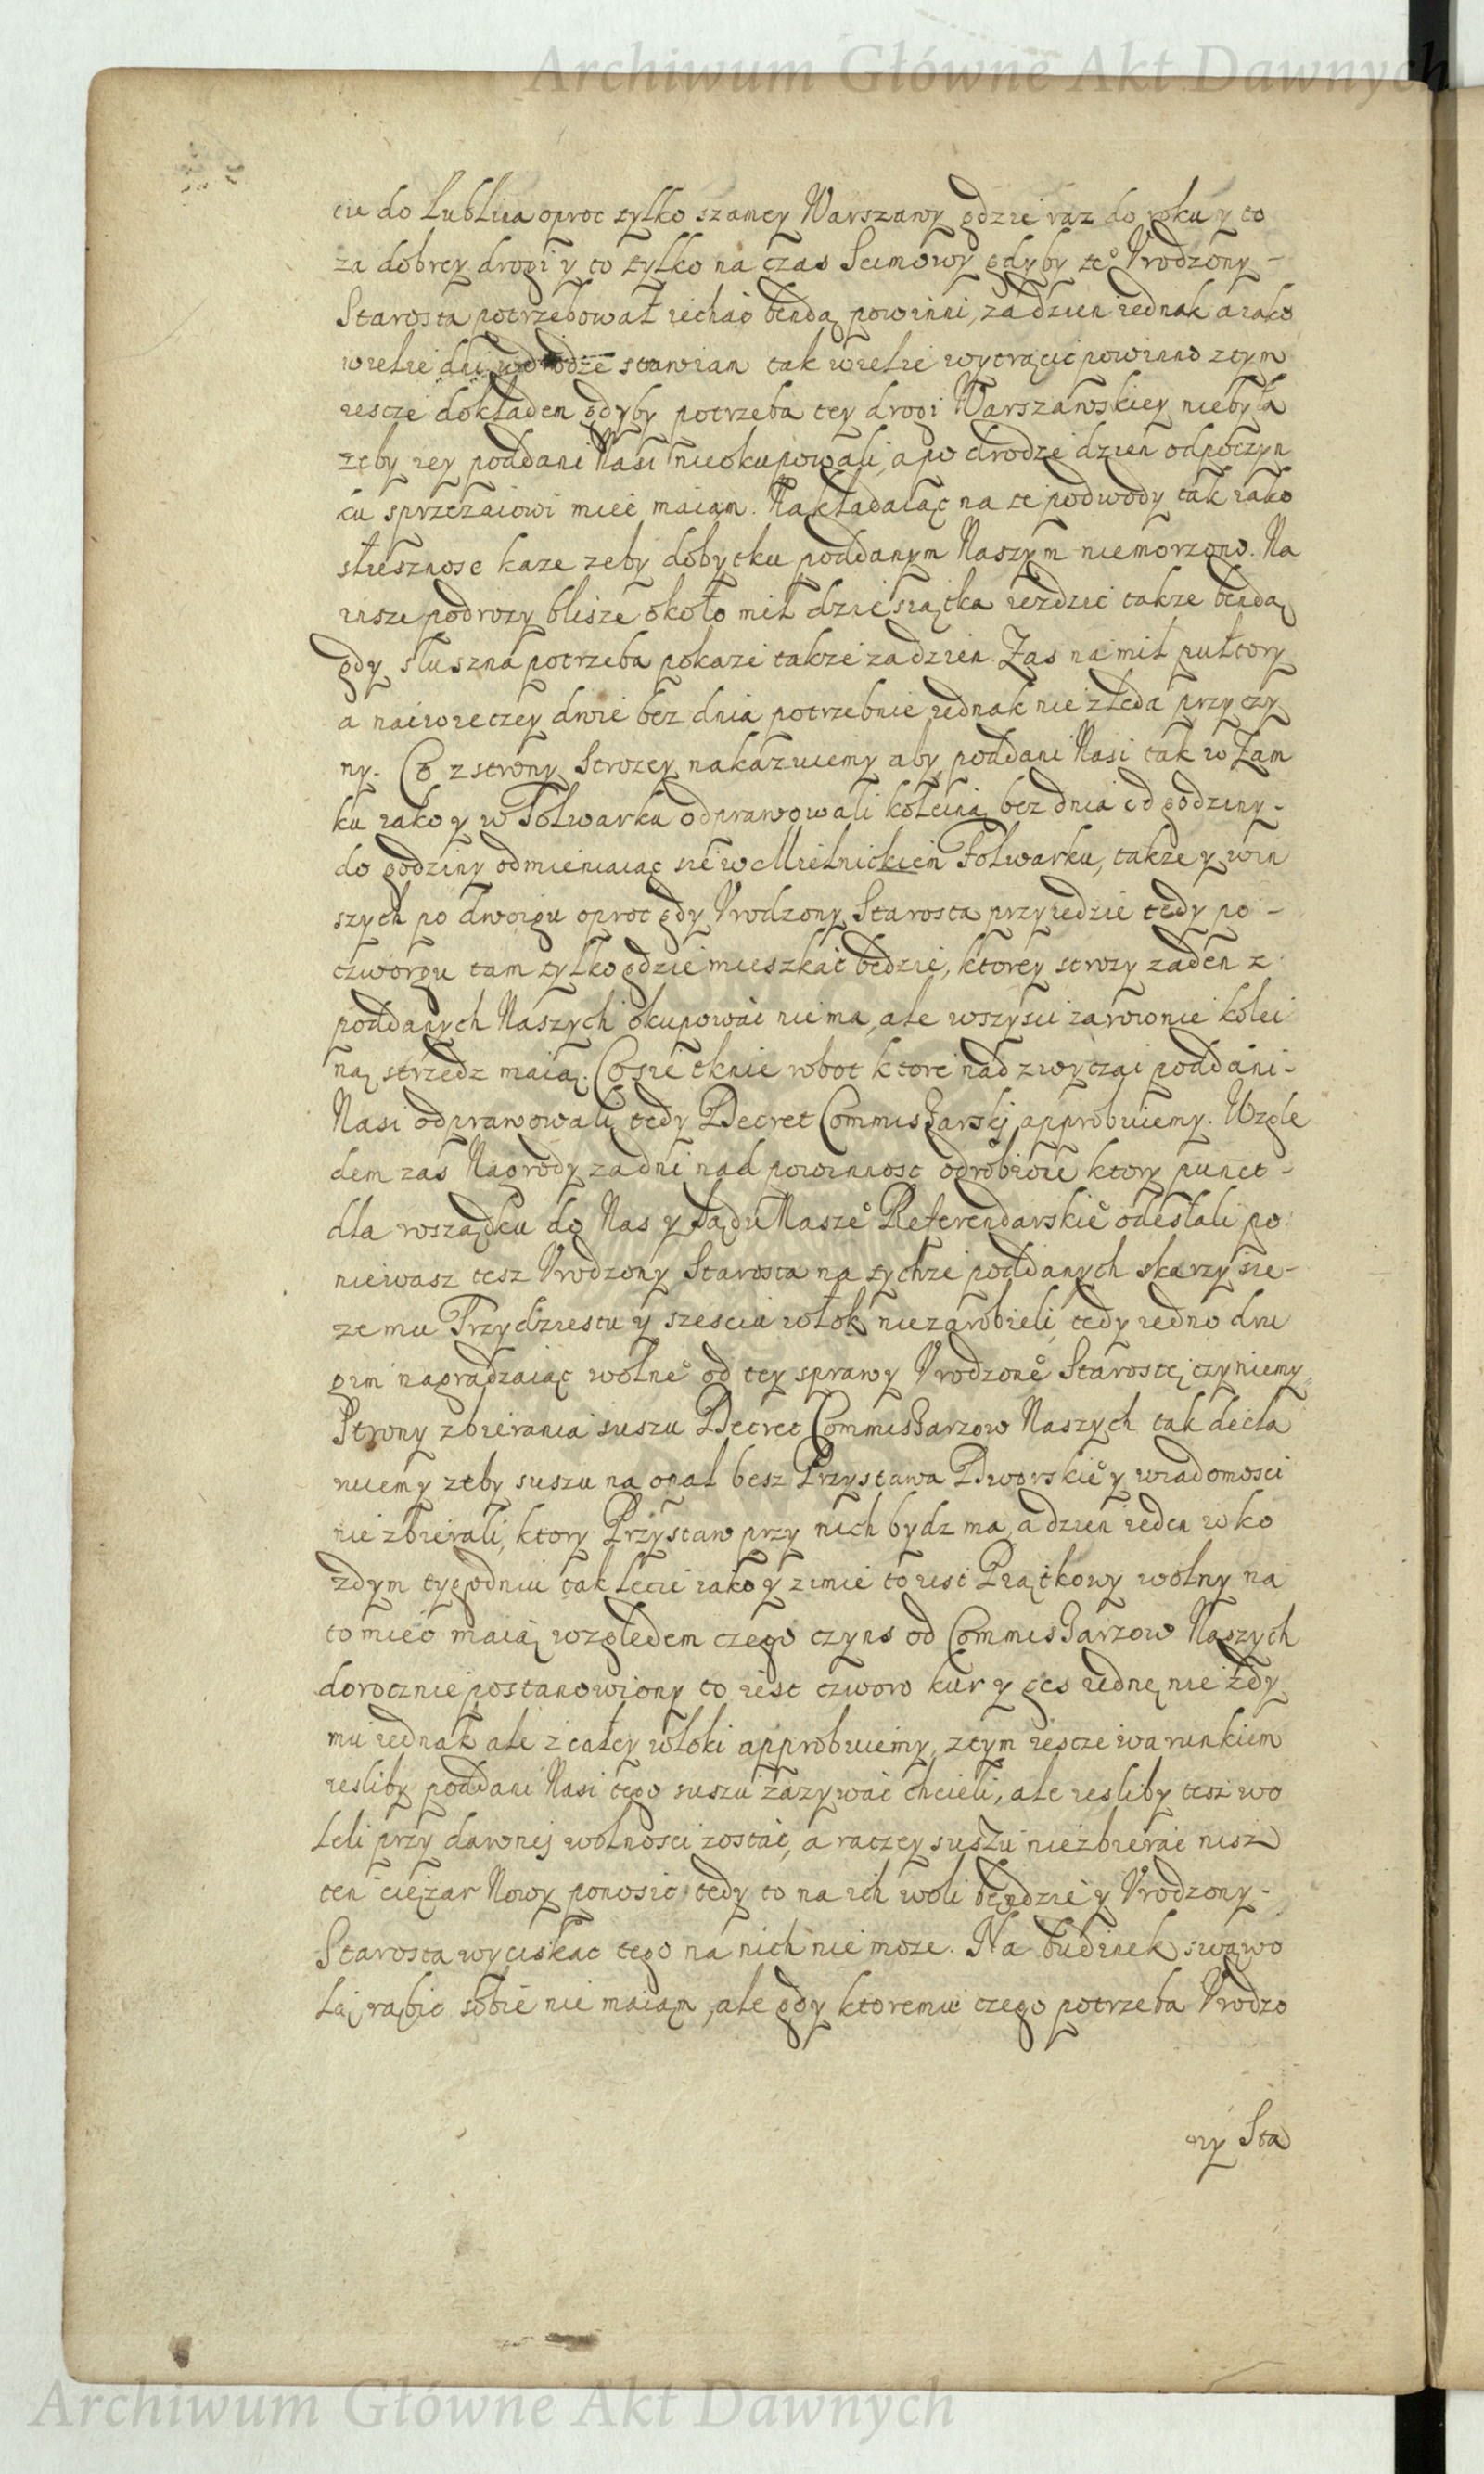 Archiwum Główne Akt Dawnych
cie do Lublina oproc tylko szamey Warszawy gdzie raz do roku y to
za dobrey drogi y to tylko na czas Seimowy gdyby te͒ Vrodzony -
Starosta potrzebował iechać bendą powinni, za dzien iednak a iako
wiele dni w drodze strawiam tak wiele wytrącic powinno z tym
iescze dokładem gdyby potrzeba tey drogi Warszawskiey niebyła
zeby iey poddani Nasi nieokupowali, a po drodze dzien odpoczyn
ku sprzezaiowi mieć maiąm. Nakładaiąc na te podwody tak iako
słusznosc kaze zeby dobytku poddanym Naszym niemorzono. Na
insze podrozy blisze około mil dziesiątka iezdzic takze bendą
gdy słuszna potrzeba pokaze takze za dzien. Zas na mil pułtory
a naiwieczey dwie bez dnia potrzebnie iednak nie z leda przyczy
ny. Co z strony Strozey nakazuiemy aby poddani Nasi tak w Zam
ku iako y w Folwarku odprawowali koleiną bez dnia od godziny -
do godziny odmieniaiąc sie w Mielnickiem Folwarku, takze y w in
szych po dwoigu oproc gdy Vrodzony Starosta przyiedzie tedy po -
czworgu tam tylko gdzie mieszkać będzie, ktorey strozy zaden z
poddanych Naszych okupować nie ma, ale wszysci zarowno kolei
ną strzedz maią. Co sie tknie robot ktore nad zwyczai poddani -
Nasi odprawowali, tedy Decret Commissarski approbuiemy. Wzglę
dem zas Nagrody za dni nad powinnosc odrobione ktory punct -
dla rosządku do Nas y sądu Nasze͒ Referendarskie͒ odesłali po
niewasz tesz Vrodzony Starosta na tychze poddanych skarzy sie -
ze mu Trzydziestu y szesciu włok niezarobieli, tedy iedno dru
gim nagradzaiąc wolne͒ od tey sprawy Vrodzone͒ Starostę czyniemy
Strony zbierania suszu Decret Commissarzow Naszych tak decla
ruiemy zeby suszu na opał besz Przystawa Dworskie͒ y wiadomosci
nie zbierali, ktory Przystaw przy nich bydz ma, a dzien ieden w ko
zdym tygodniu tak lecie iako y zimie to iest Piątkowy wolny na
to mieć maią względem czego czyns od Commissarzow Naszych
dorocznie postanowiony to iest czworo kur y gęs iednę nie z dy
mu iednak ale z całey włoki approbuiemy, z tym iescze warunkiem
iesliby poddani Nasi tego suszu zazywać chcieli, ale iesliby tesz wo
leli przy dawnej wolnosci zostać, a raczey suszu niezbierać nisz
ten cięzar Nowy ponosić, tedy to na ich woli będzie y Vrodzony -
Starosta wyciskac tego na nich nie moze. Na budinek swawo
lą rąbic sobie nie maiąm, ale gdy ktoremu czego potrzeba Vrodzo
ny Sta
Archiwum Główne Akt Dawnych